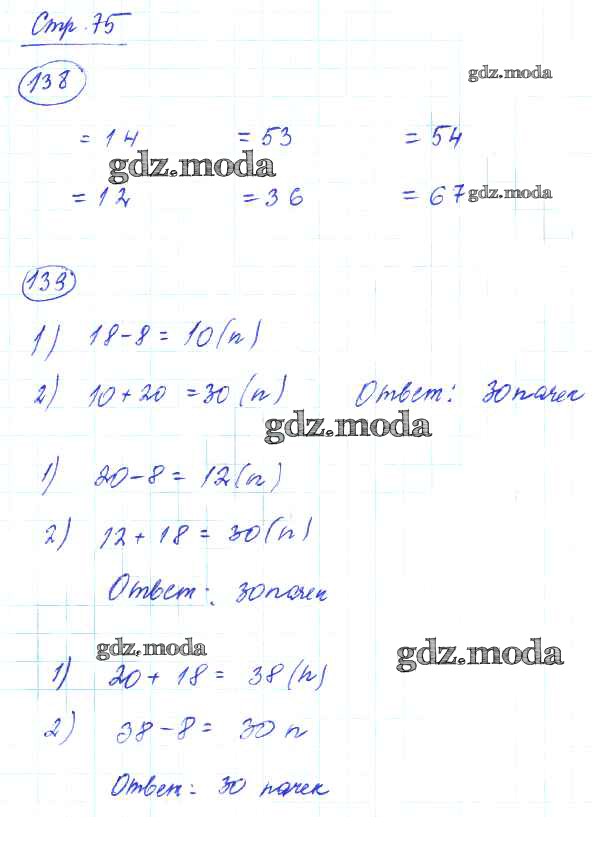 Стр. 75
138
gdz.moda
= 14 = 53 = 54
gdz.moda
= 12 = 36 = 67 gdz.moda
139
1) 18-8 = 10 (п)
2) 10+20 = 30 (п) Ответ: 30 пачек
gdz.moda
1) 20-8 = 12 (п)
2) 12 + 18 = 30 (п)
Ответ: 30 пачек
gdz.moda gdz.moda
1) 20 + 18 = 38 (п)
2) 38 - 8 = 30 п
Ответ: 30 пачек